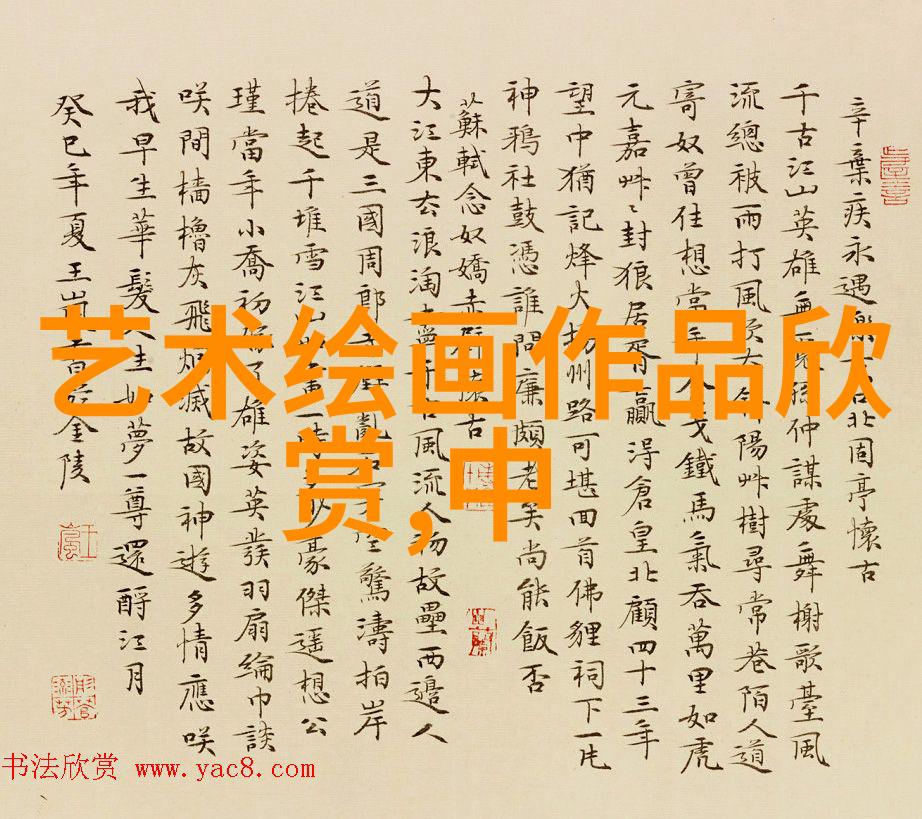 辛棄疾永遇樂口北固亭懷古
千古江山英雄無覓孫仲謀處舞榭歌臺風
流總被雨打風吹去陽艸樹尋常巷陌人道
寄奴曾住想當年金戈鐵馬氣吞萬里如虎
元嘉艸〻封狼居胥贏得倉皇北顧四十三年
望中猶記烽火揚州路可堪回首佛貍祠下一片
神鴉社鼓憑誰問廉頗老矣尚能飯否
蘇軾念奴嬌赤壁懷古
大江東去浪淘盡千古風流人物故壘西邊人
道是三國周郎赤壁亂石穿空驚濤拍岸
捲起千堆雪江山如畫一時多少豪傑遙想公
瑾當年小喬初嫁了雄姿英發羽扇綸巾談
咲間檣櫓灰飛烟滅故國神遊多情應咲
我早生華髮人生如夢一尊還酹江月
癸巳年夏王嵐書於金陵
艺术绘画作品欣
赏,中
书法欣赏 www.yac8.com